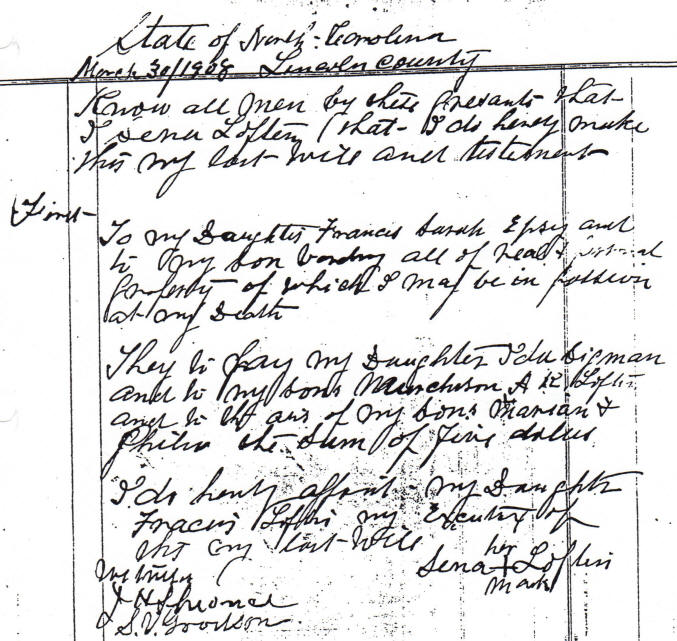 State of North-Carolina
March 30/1908 Lincoln County
Know all men by these presants that
I Sena Loften (that- I do hereby make
this my last will and testement
First-
To my Daughter Francis Sarah Epsy and
to my son all of real &
property of which I may be in
at my Death
They to pay my Daughter Ida Sigman
and to my sons Murchison A K Loftin
and to the of my sons Marian &
Philo the Sum of five
I do herby my Daughter
Francis Loftin my Executrix of
this my last-will
her
Sena + Loftin
mark
Witness (